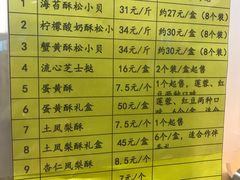 1 海苔酥松小贝 31元/斤 约27元/盒(8个装)
2 柠檬酸奶酥松小贝 34元/斤 约30元/盒(8个装)
3 蟹黄酥松小贝 34元/斤 约30元/盒(8个装)
4 流心芝士挞 16元/盒 2个装/盒起售
5 蛋黄酥 7.5元/个 1个起售,莲蓉、
6 蛋黄酥礼盒 50元/盒 6个/盒,莲蓉、红豆两种口味
7 土凤梨酥 7.5元/个 1个起售
8 土凤梨酥礼盒 45元/盒 6个/盒,适合作伴
9 杏仁凤梨酥 8.5元/个
7元/